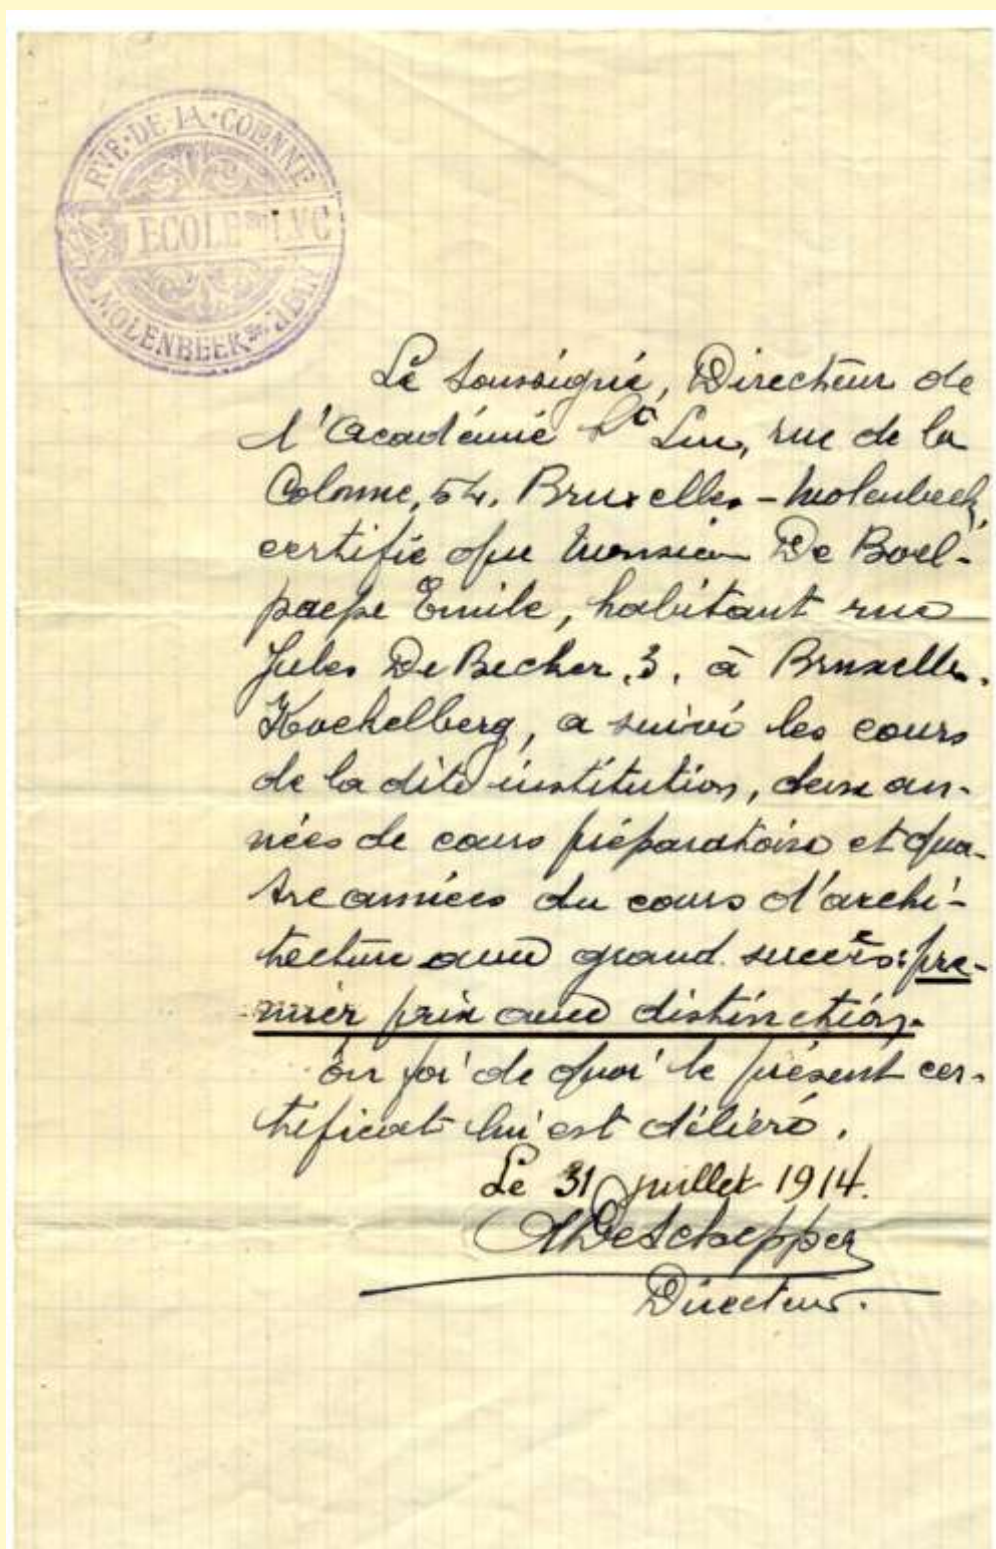 RVE·DE·LA·COLONNE
ECOLE St LVC
MOLENBEEK St JEAN
Le soussigné, Directeur de
l'Académie St Luc, rue de la
Colonne, 54, Bruxelles-Molenbeek,
certifie que Monsieur De Boel-
paepe Emile, habitant rue
Jules De Becker, 3, à Bruxelles-
Koekelberg, a suivi les cours
de la dite institution, deux an-
nées de cours préparatoire et qua-
tre années du cours d'archi-
tecture avec grand succès: pre-
mier prix avec distinction.
En foi de quoi le présent cer-
tificat lui est délivré.
Le 31 juillet 1914.
A DeSchepper
Directeur.